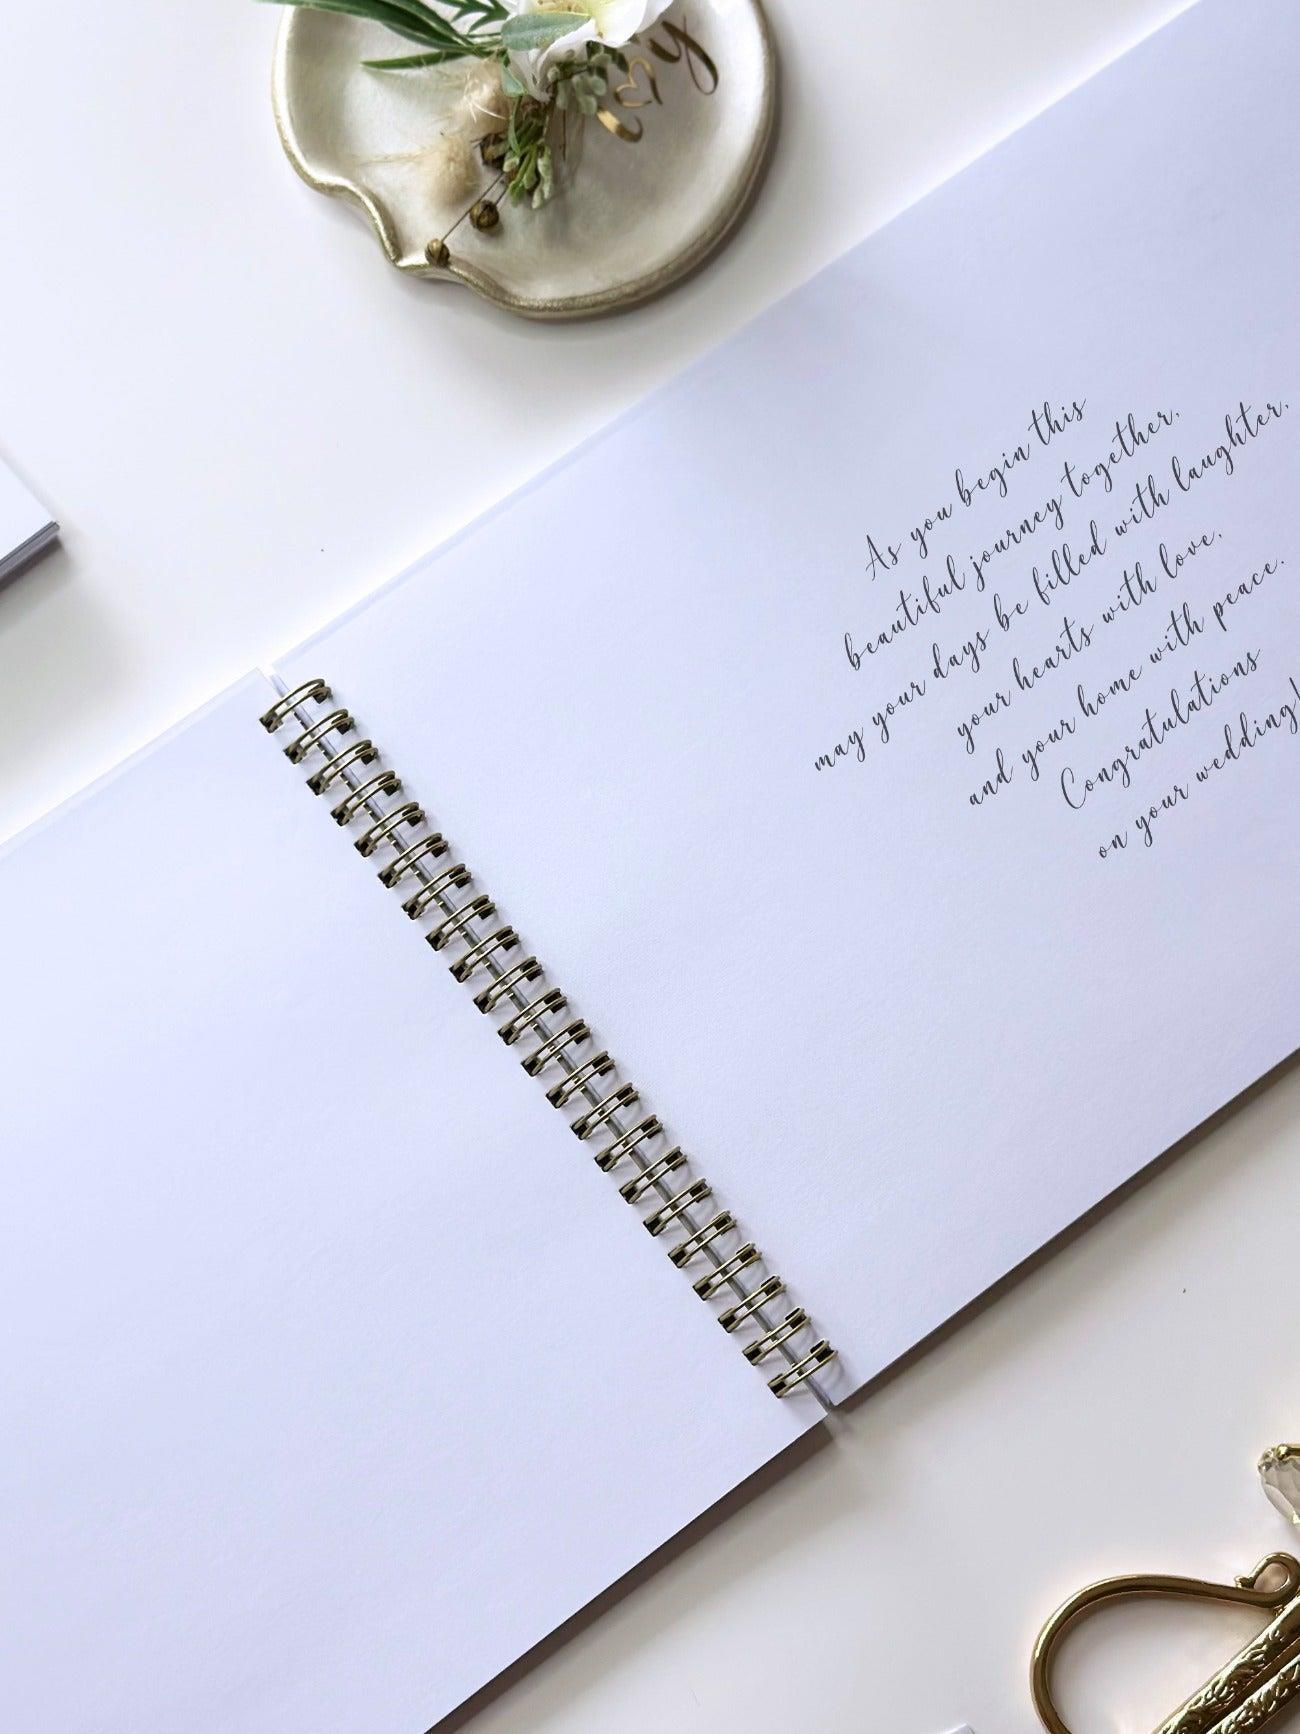 As you begin this
beautiful journey together,
may your days be filled with laughter,
your hearts with love,
and your home with peace.
Congratulations
on your wedding!